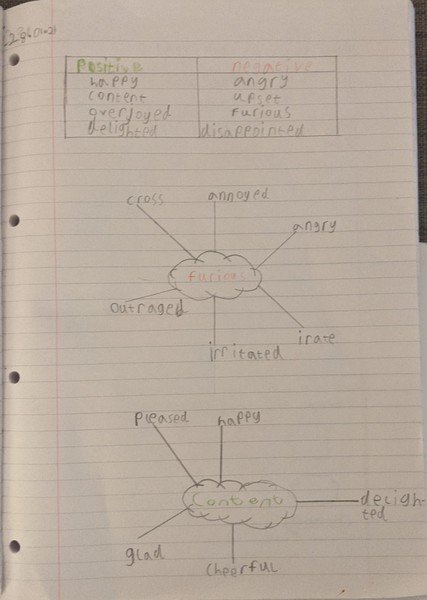 positive negative
happy angry
content upset
overjoyed furious
delighted disappointed
cross annoyed
angry
furious
outraged
irritated irate
pleased happy
content deligh-
ted
glad
cheerful